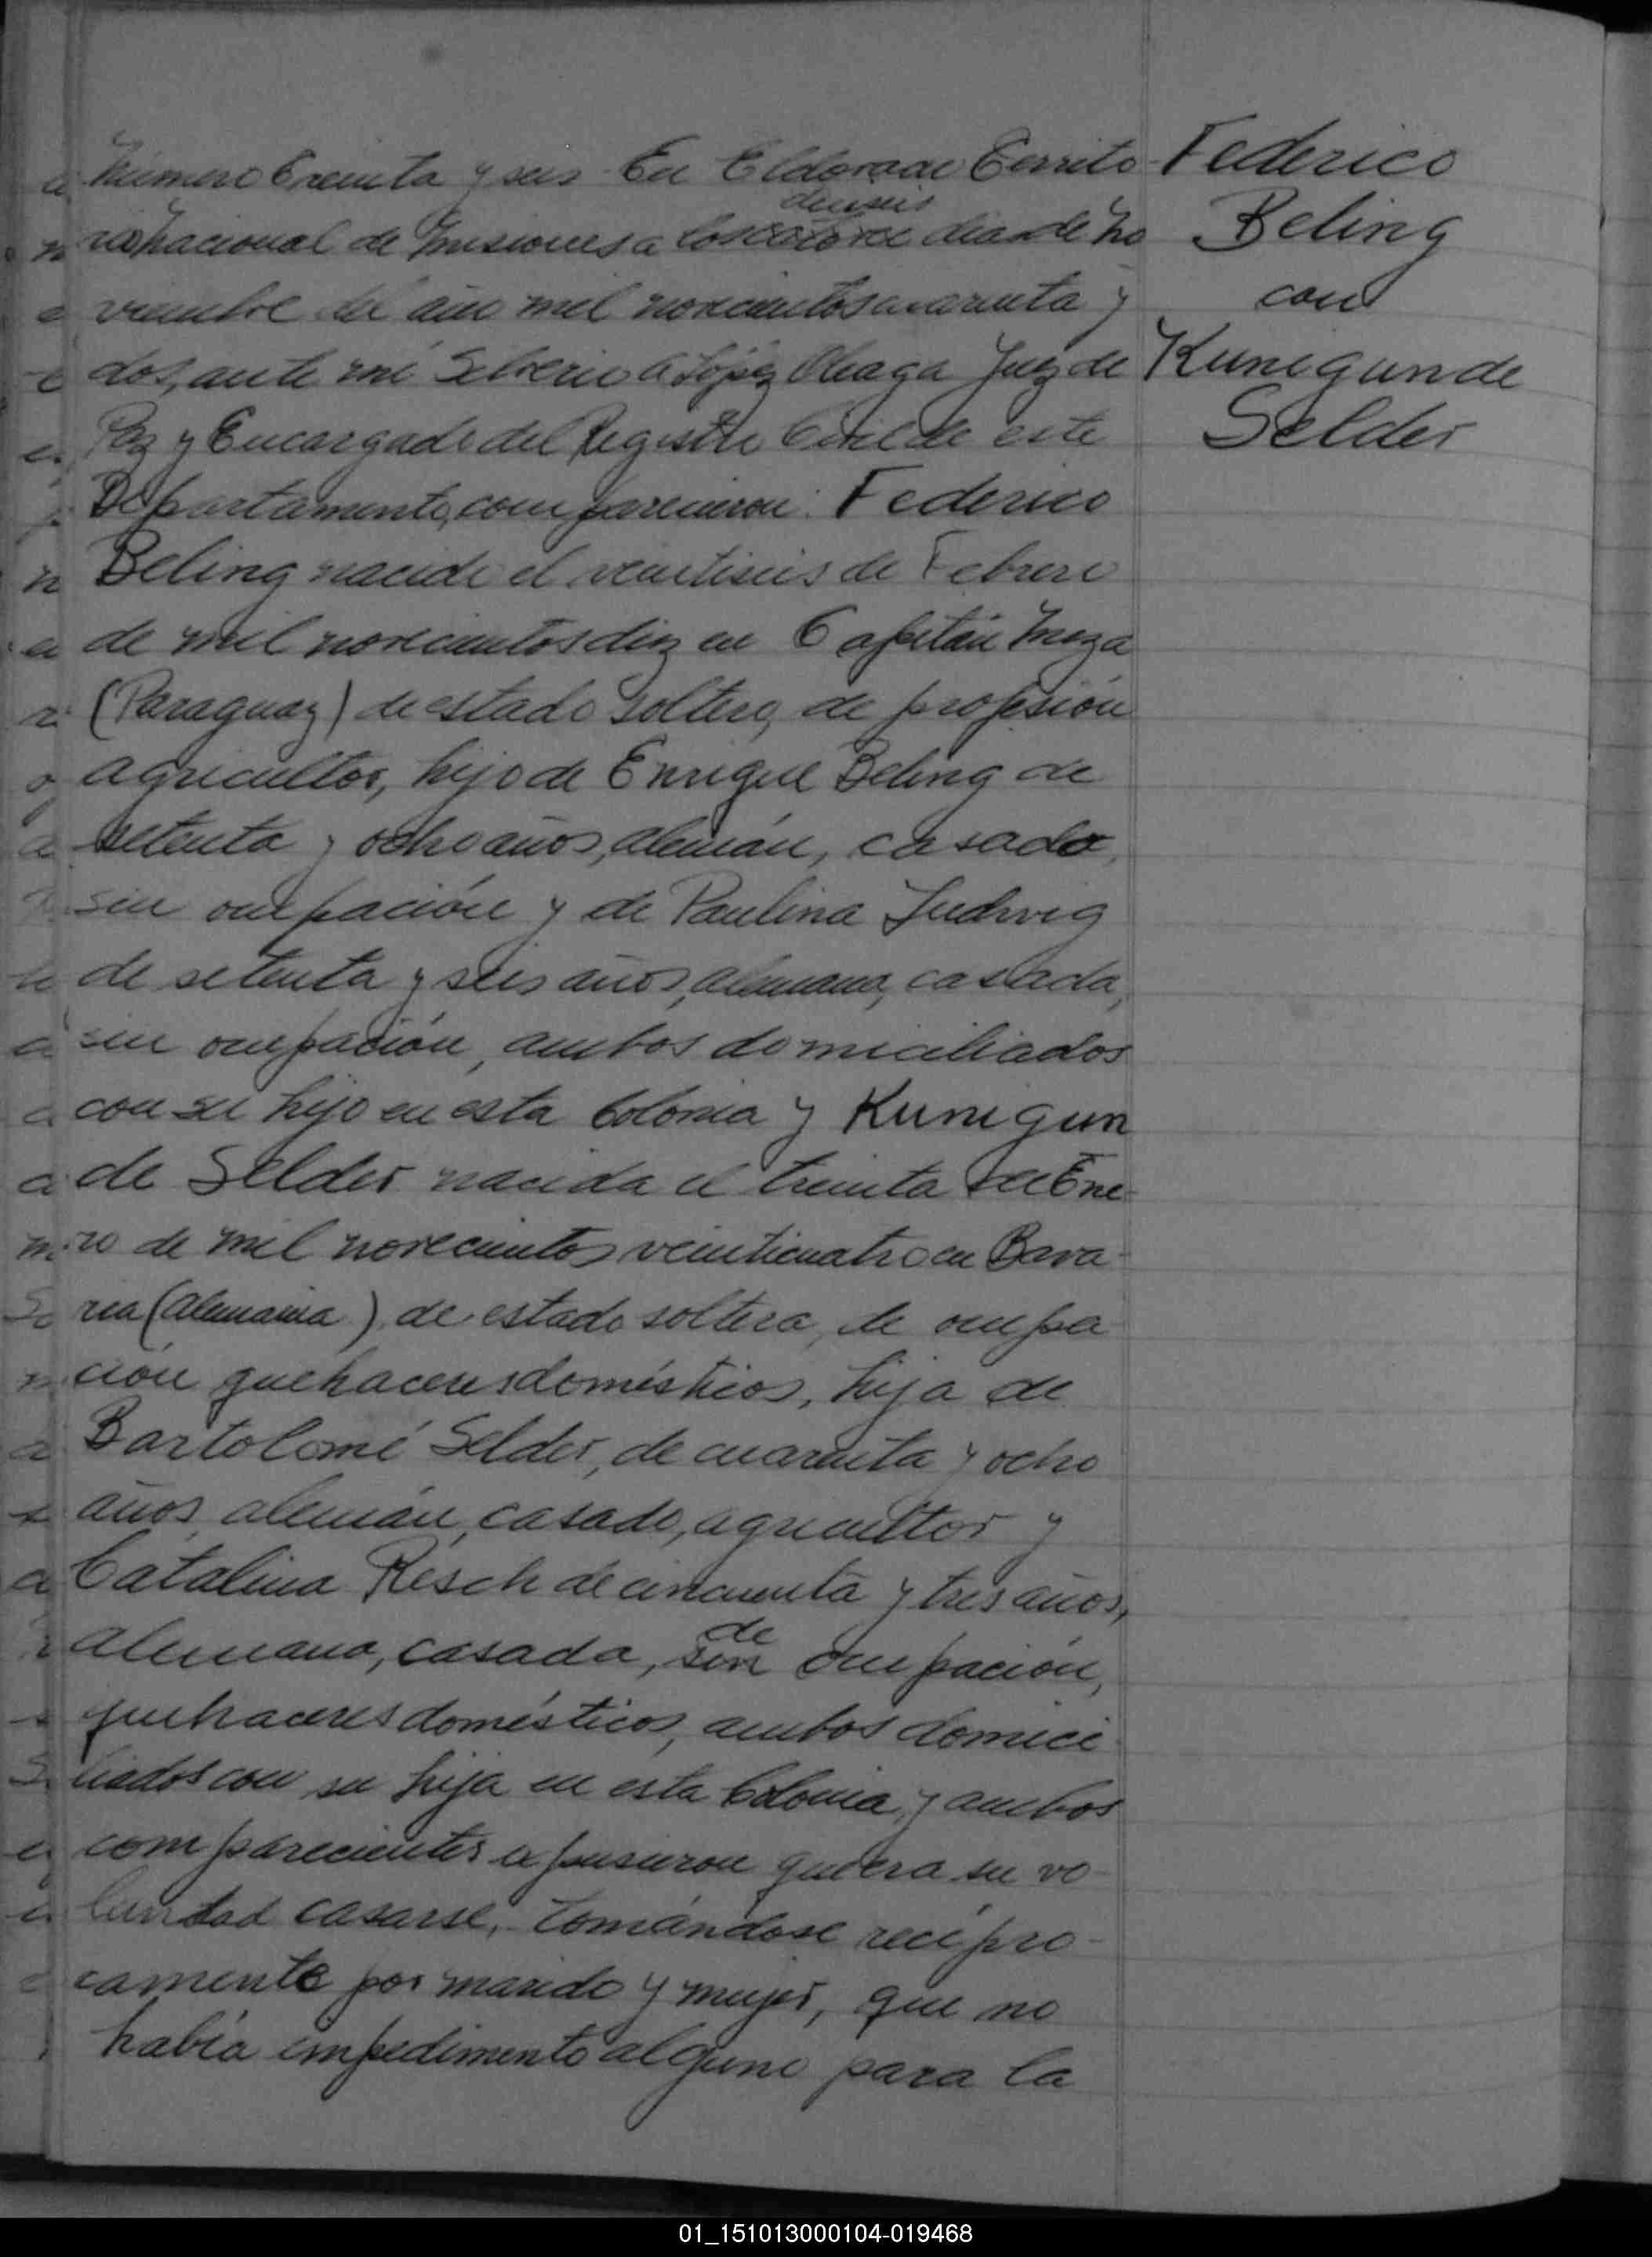 Número treinta y seis En Eldorado Territo
rio Nacional de Misiones a los catorce dias de No
dieciseis
viembre del año mil novecientos cuarenta y
dos, ante mi Silverio A López Olaga Juez de
Paz y Encargado del Registro Civil de este
Departamento, comparecieron: Federico
Beling nacido el veintiseis de Febrero
de mil novecientos diez en Capitán Meza
(Paraguay) de estado soltero, de profesión
agricultor, hijo de Enrique Beling de
setenta y ocho años, alemán, casado,
sin ocupación y de Paulina Ludwig
de setenta y seis años, alemana, casada,
sin ocupación, ambos domiciliados
con su hijo en esta Colonia y Kunigun
de Selder nacida el treinta de Ene-
ro de mil novecientos veinticuatro en Bava-
ria (Alemania) de estado soltera, de ocupa
ción quehaceres domésticos, hija de
Bartolomé Selder, de cuarenta y ocho
años, alemán, casado, agricultor y
Catalina Resch de cincuenta y tres años,
alemana, casada, sin ocupación,
de
quehaceres domésticos, ambos domici
liados con su hija en esta Colonia, y ambos
comparecientes expusieron que era su vo-
luntad casarse, tomándose recípro-
camente por marido y mujer, que no
había impedimento alguno para la
Federico
Beling
con
Kunigunde
Selder
01_151013000104-019468